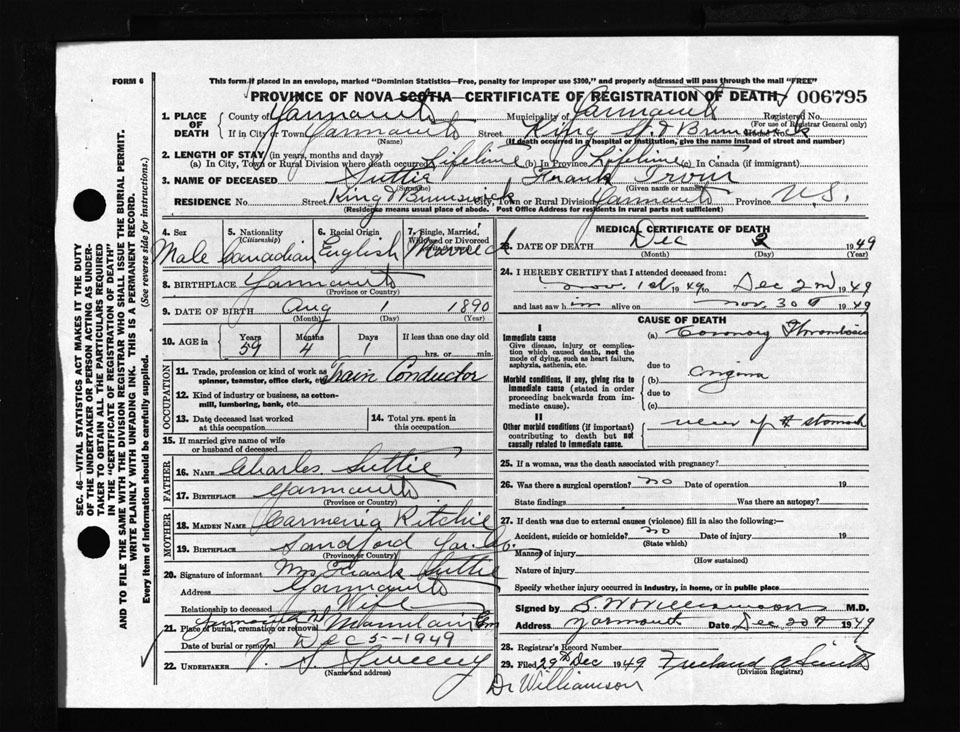 FORM 6
This form if placed in an envelope, marked "Dominion Statistics—Free, penalty for improper use $300," and properly addressed will pass through the mail "FREE"
PROVINCE OF NOVA SCOTIA—CERTIFICATE OF REGISTRATION OF DEATH 006795
1. PLACE OF DEATH County of Yarmouth Municipality of Yarmouth Registered No.
(For use of Registrar General only)
If in City or Town Yarmouth Street King St & Brunswick
(Name) (If death occurred in a hospital or institution, give the name instead of street and number)
2. LENGTH OF STAY (in years, months and days)
(a) In City, Town or Rural Division where death occurred Lifetime (b) In Province Lifetime (c) In Canada (if immigrant)
3. NAME OF DECEASED Suttie Frank
(Surname) (Given name or names)
RESIDENCE No Street King & Brunswick City, Town or Rural Division Yarmouth Province N.S.
(Residence means usual place of abode. Post Office Address for residents in rural parts not sufficient)
4. Sex Male
5. Nationality (Citizenship) Canadian
6. Racial Origin English
7. Single, Married, Widowed or Divorced Married
8. BIRTHPLACE Yarmouth
(Province or Country)
9. DATE OF BIRTH Aug 1890
(Month) (Day) (Year)
10. AGE in Years Months Days If less than one day old
59 4 1 hrs. or min.
OCCUPATION
11. Trade, profession or kind of work as spinner, teamster, office clerk, etc. Train Conductor
12. Kind of industry or business, as cotton-mill, lumbering, bank, etc.
13. Date deceased last worked at this occupation
14. Total yrs. spent in this occupation
15. If married give name of wife or husband of deceased
FATHER
16. NAME Charles Suttie
17. BIRTHPLACE Yarmouth
(Province or Country)
MOTHER
18. MAIDEN NAME Ritchie
19. BIRTHPLACE Sandford Yar. Co.
(Province or Country)
20. Signature of informant Mrs Frank Suttie
Address Yarmouth
Relationship to deceased Wife
21. Place of burial, cremation or removal Yarmouth Mountain Cem
Date of burial or removal Dec 5—1949
22. UNDERTAKER Sweeny
(Name and address)
MEDICAL CERTIFICATE OF DEATH
23. DATE OF DEATH Dec 2 1949
(Month) (Day) (Year)
24. I HEREBY CERTIFY that I attended deceased from:
Nov. 1st 1949 to Dec 2nd 1949
and last saw him alive on Nov. 30th 1949
CAUSE OF DEATH
I
Immediate cause
Give disease, injury or complication which caused death, not the mode of dying, such as heart failure, asphyxia, asthenia, etc.
(a) Coronary Thrombosis
due to
Morbid conditions, if any, giving rise to immediate cause (stated in order proceeding backwards from immediate cause).
(b) Angina
due to
(c)
II
Other morbid conditions (if important) contributing to death but not causally related to immediate cause.
ulcer of stomach
25. If a woman, was the death associated with pregnancy?
26. Was there a surgical operation? no Date of operation 19
State findings Was there an autopsy?
27. If death was due to external causes (violence) fill in also the following:—
Accident, suicide or homicide? no Date of injury 19
(State which)
Manner of injury
(How sustained)
Nature of injury
Specify whether injury occurred in industry, in home, or in public place
Signed by S. W. Williamson M.D.
Address Yarmouth Date Dec 20th 1949
28. Registrar's Record Number
29. Filed 29th Dec 1949
(Division Registrar)
Dr Williamson
SEC. 46—VITAL STATISTICS ACT MAKES IT THE DUTY
OF THE UNDERTAKER OR PERSON ACTING AS UNDER-
TAKER TO OBTAIN ALL THE PARTICULARS REQUIRED
IN THE "CERTIFICATE OF REGISTRATION OF DEATH"
AND TO FILE THE SAME WITH THE DIVISION REGISTRAR WHO SHALL ISSUE THE BURIAL PERMIT.
WRITE PLAINLY WITH UNFADING INK. THIS IS A PERMANENT RECORD.
Every item of information should be carefully supplied. (See reverse side for instructions.)